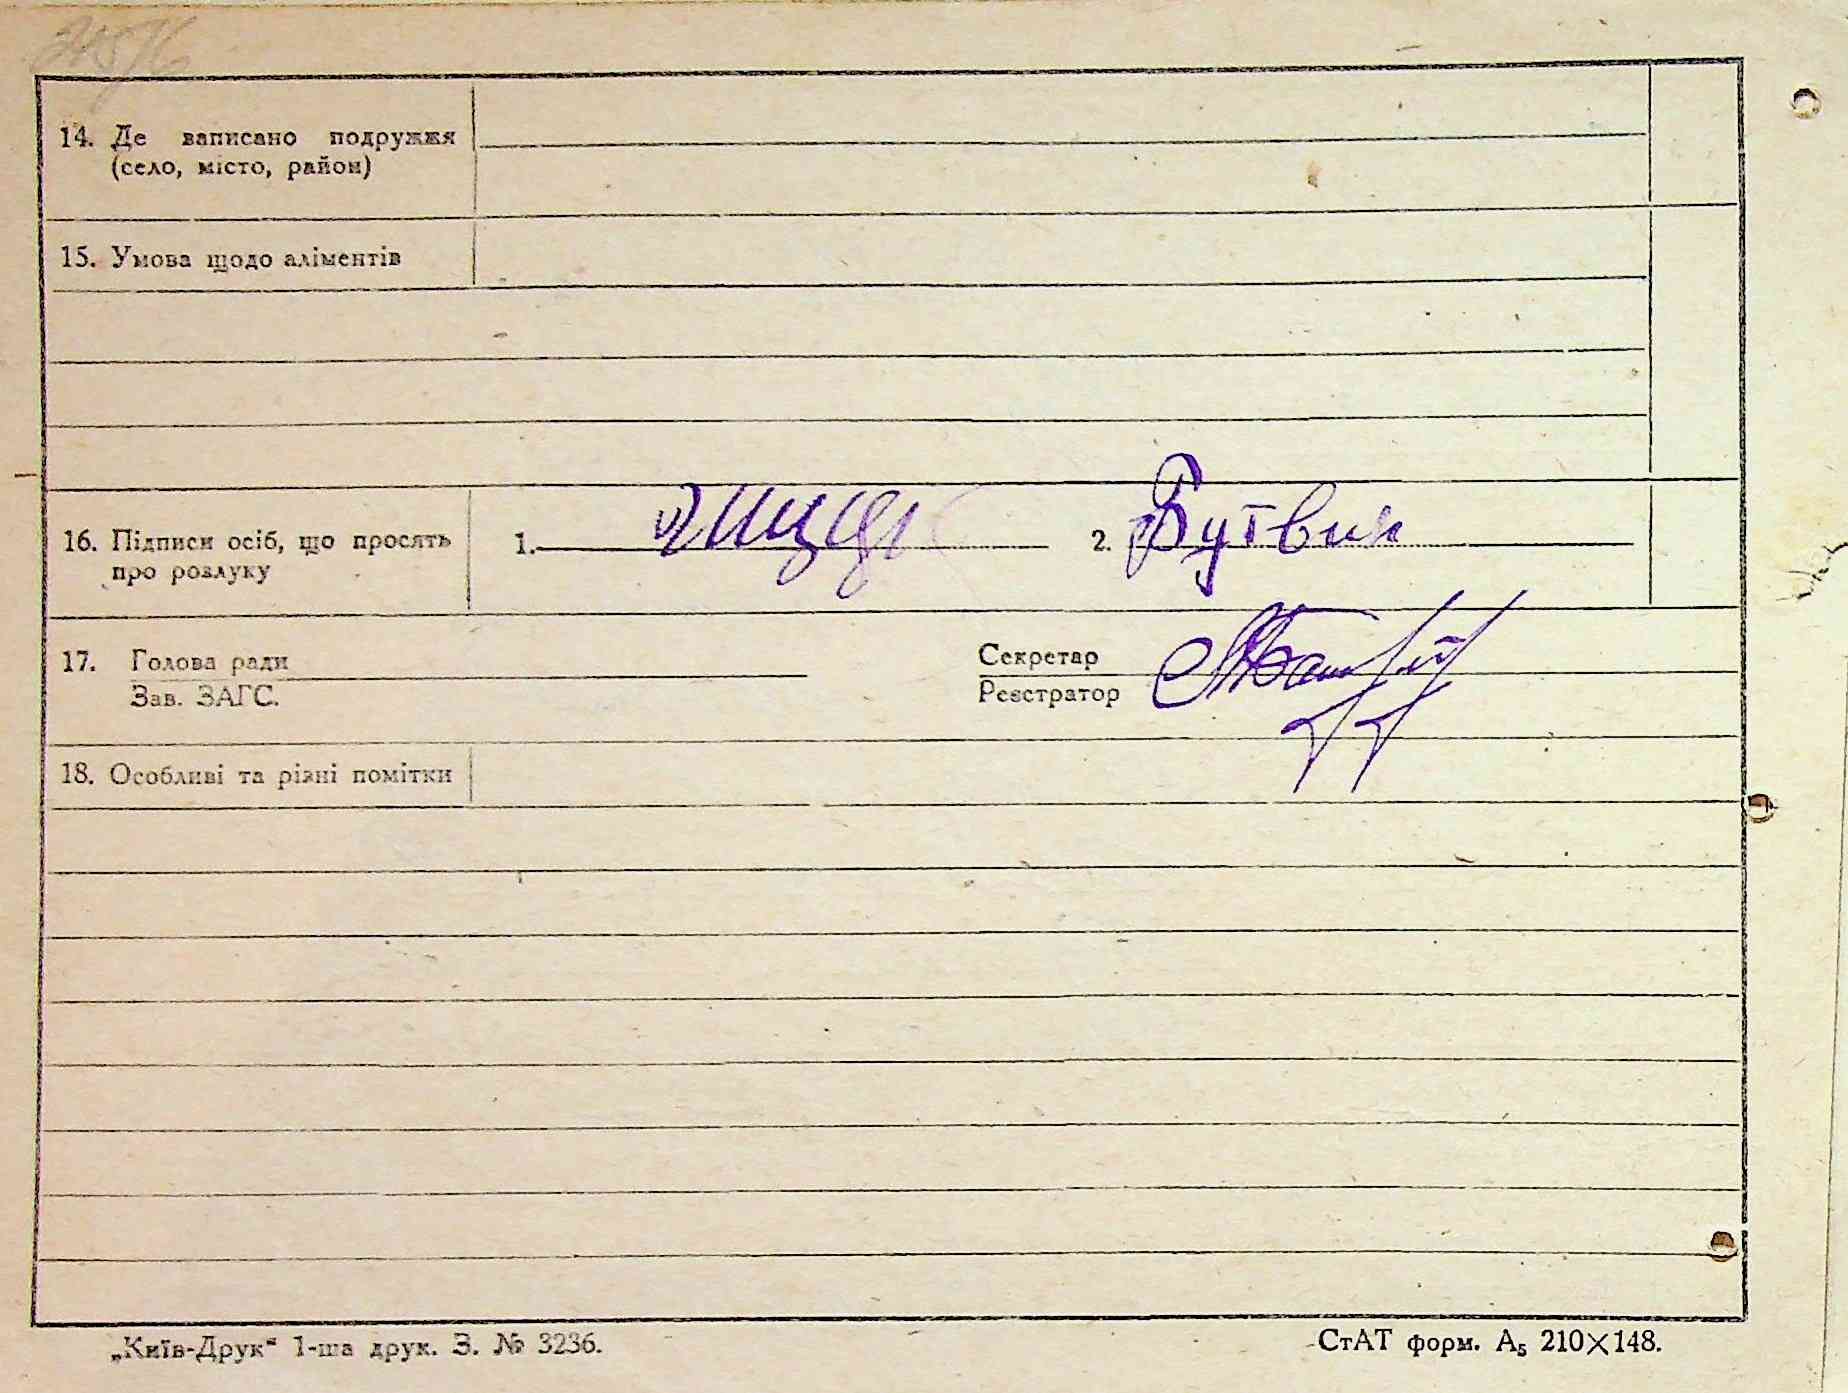 14. Де записано подружжя
(село, місто, район)
15. Умова щодо аліментів
16. Підписи осіб, що просять
про розлуку
1.
2. Бутвин
17. Голова ради
Зав. ЗАГС.
Секретар
Реєстратор
18. Особливі та різні помітки
„Київ-Друк“ 1-ша друк. З. № 3236.
СтАТ форм. А₅ 210×148.